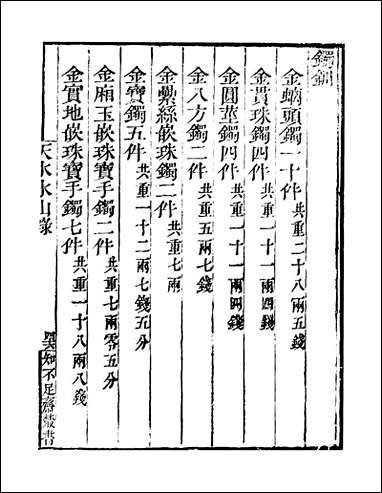 鐲釧
金螭頭鐲一十件 共重二十八兩五錢
金貫珠鐲四件 共重一十一兩四錢
金圓莖鐲四件 共重一十一兩四錢
金八方鐲二件 共重五兩七錢
金纍絲嵌珠鐲二件 共重七兩
金寶鐲五件 共重一十二兩七錢五分
金廂玉嵌珠寶手鐲二件 共重七兩零五分
金實地嵌珠寶手鐲七件 共重一十八兩八錢
天水冰山錄
知不足齋叢書